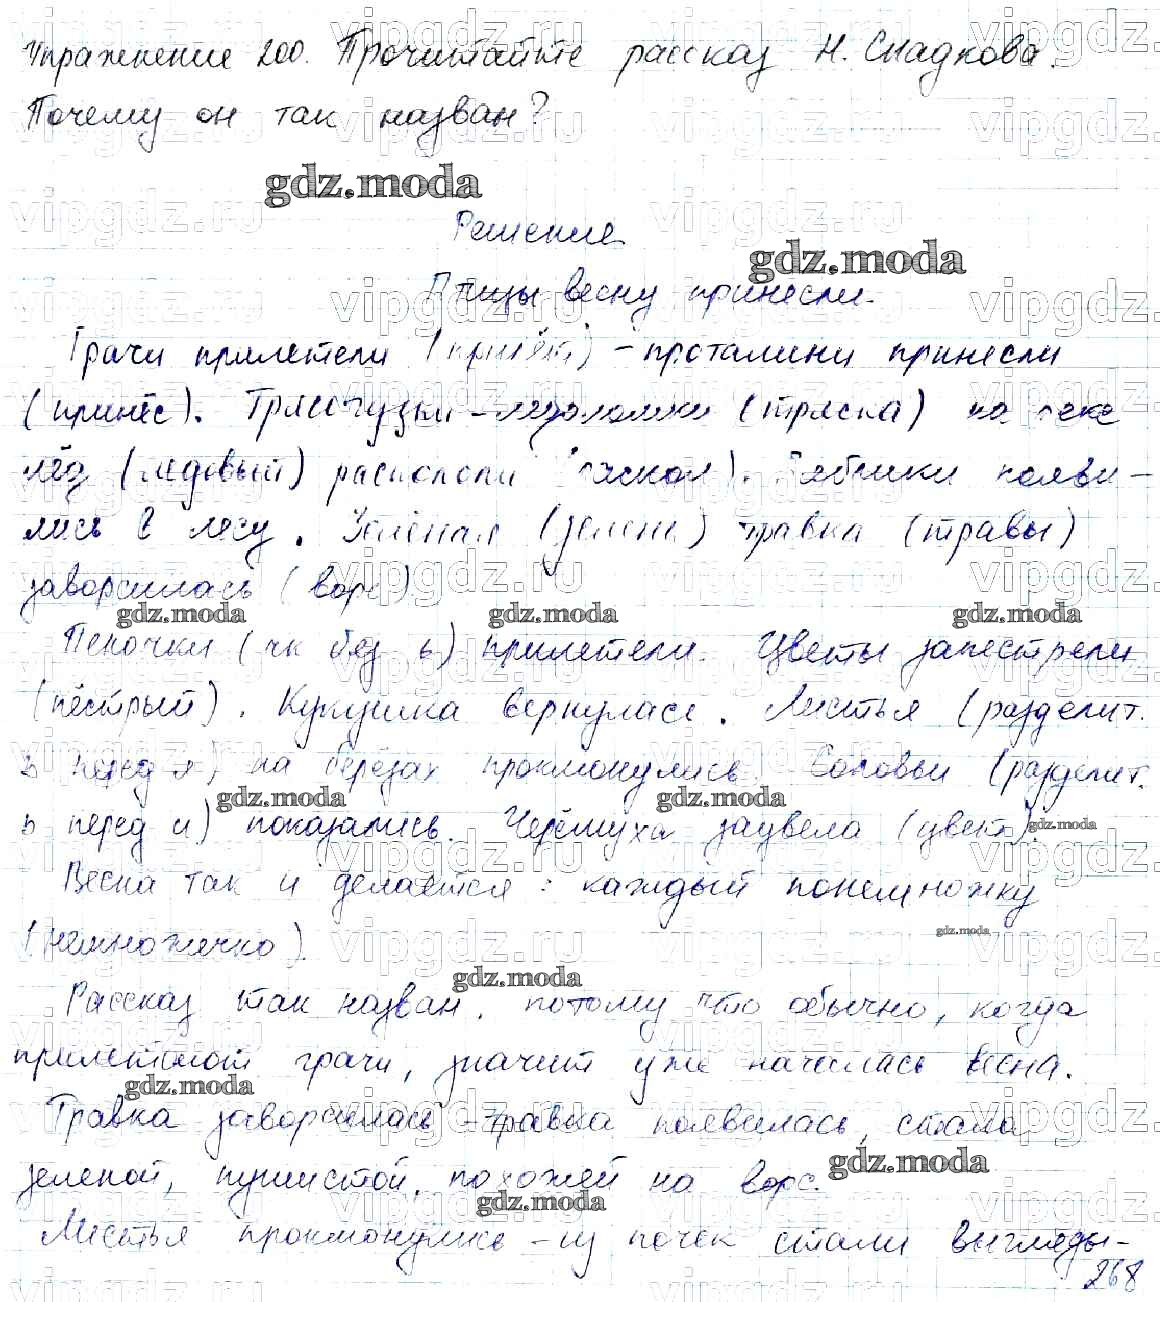 Упражнение 200. Прочитайте рассказ Н. Сладкова.
Почему он так назван?
gdz.moda
Решение
gdz.moda
Птицы весну принесли.
Грачи прилетели (прилёт) - проталины принесли
(принёс). Трясогузки - ледоломки (тряска) на реке
лёд (ледовый) раскололи (раскол). Зяблики появи-
лись в лесу. Зелёная (зелень) травка (травы)
заворсилась (ворс)
gdz.moda gdz.moda gdz.moda
Пеночки (чк без ь) прилетели. Цветы запестрели
(пёстрый). Кукушка вернулась. Листья (разделит.
ь перед я) на берёзах проклюнулись. Соловьи (разделит.
gdz.moda gdz.moda
ь перед и) показались. Черёмуха зацвела (цвет).
gdz.moda
Весна так и делается: каждый понемножку
(немножечко).
gdz.moda
gdz.moda
Рассказ так назван, потому что обычно, когда
прилетают грачи, значит уже началась весна.
gdz.moda
Травка заворсилась - травка появилась, стала
gdz.moda
зеленой, пушистой, похожей на ворс.
gdz.moda
Листья проклюнулись - из почек стали выгляды-
268
vipgdz.ru